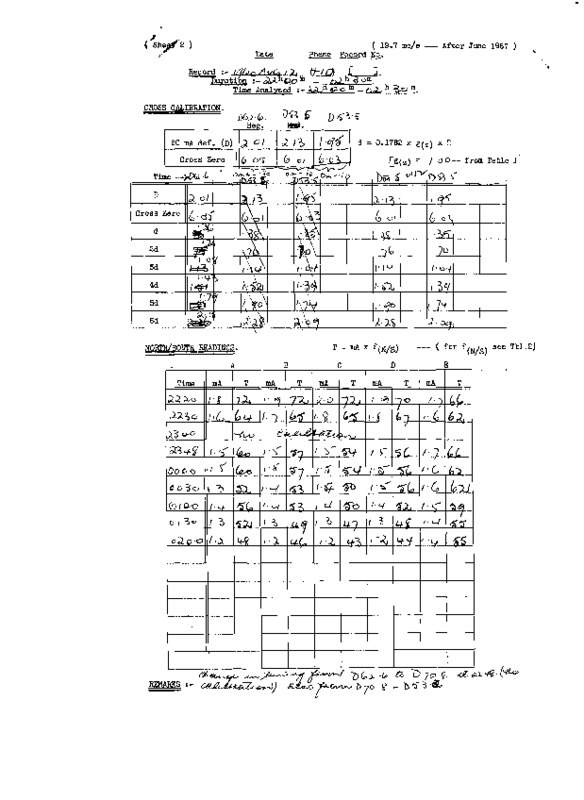 ( Sheet 2 ) ( 19.7 mc/s — After June 1967 )
Date Phase Record No.
Record :-
Duration :- 22h00m - 02h30m.
Time Analysed :- 22h20m - 02h30m.
CROSS CALIBRATION.
D62.6 D53.5 D53.5
Neg.
DC ma def. (D) 2.01 2.13 1.95 d = 0.1782 x g(z) x D
Cross Zero 6.05 6.01 6.03 [g(z) = 1.00-- from Table ]
Time D53.5 D53.5
D 2.01 2.13 1.95 2.13 1.95
Cross Zero 6.05 6.01 6.03 6.01 6.03
d .38 .35 .38 .35
2d .76 .70 .76 .70
3d 1.14 1.04 1.14 1.04
4d 1.52 1.39 1.52 1.39
5d 1.90 1.74 1.90 1.74
6d 2.28 2.09 2.28 2.09
NORTH/SOUTH READINGS. T = mA x f(N/S) --- ( for f(N/S) see Tbl.2)
A B C D E
Time mA T mA T mA T mA T mA T
2220 1.8 72 1.9 72 2.0 72 1.9 70 1.7 66
2230 1.6 64 1.7 65 1.8 65 1.8 67 1.6 62
2300 No Calibration
2348 1.5 60 1.5 57 1.5 54 1.5 56 1.7 66
0000 1.5 60 1.5 57 1.5 54 1.5 56 1.6 62
0030 1.3 52 1.4 53 1.4 50 1.5 56 1.6 62
0100 1.4 56 1.4 53 1.4 50 1.4 52 1.5 59
0130 1.3 52 1.3 49 1.3 47 1.3 48 1.4 55
0200 1.2 48 1.2 46 1.2 43 1.2 44 1.4 55
Change in tuning from D62.6 to D70.8 at (No
REMARKS :- Calibration) Also from D70.8 - D53.5